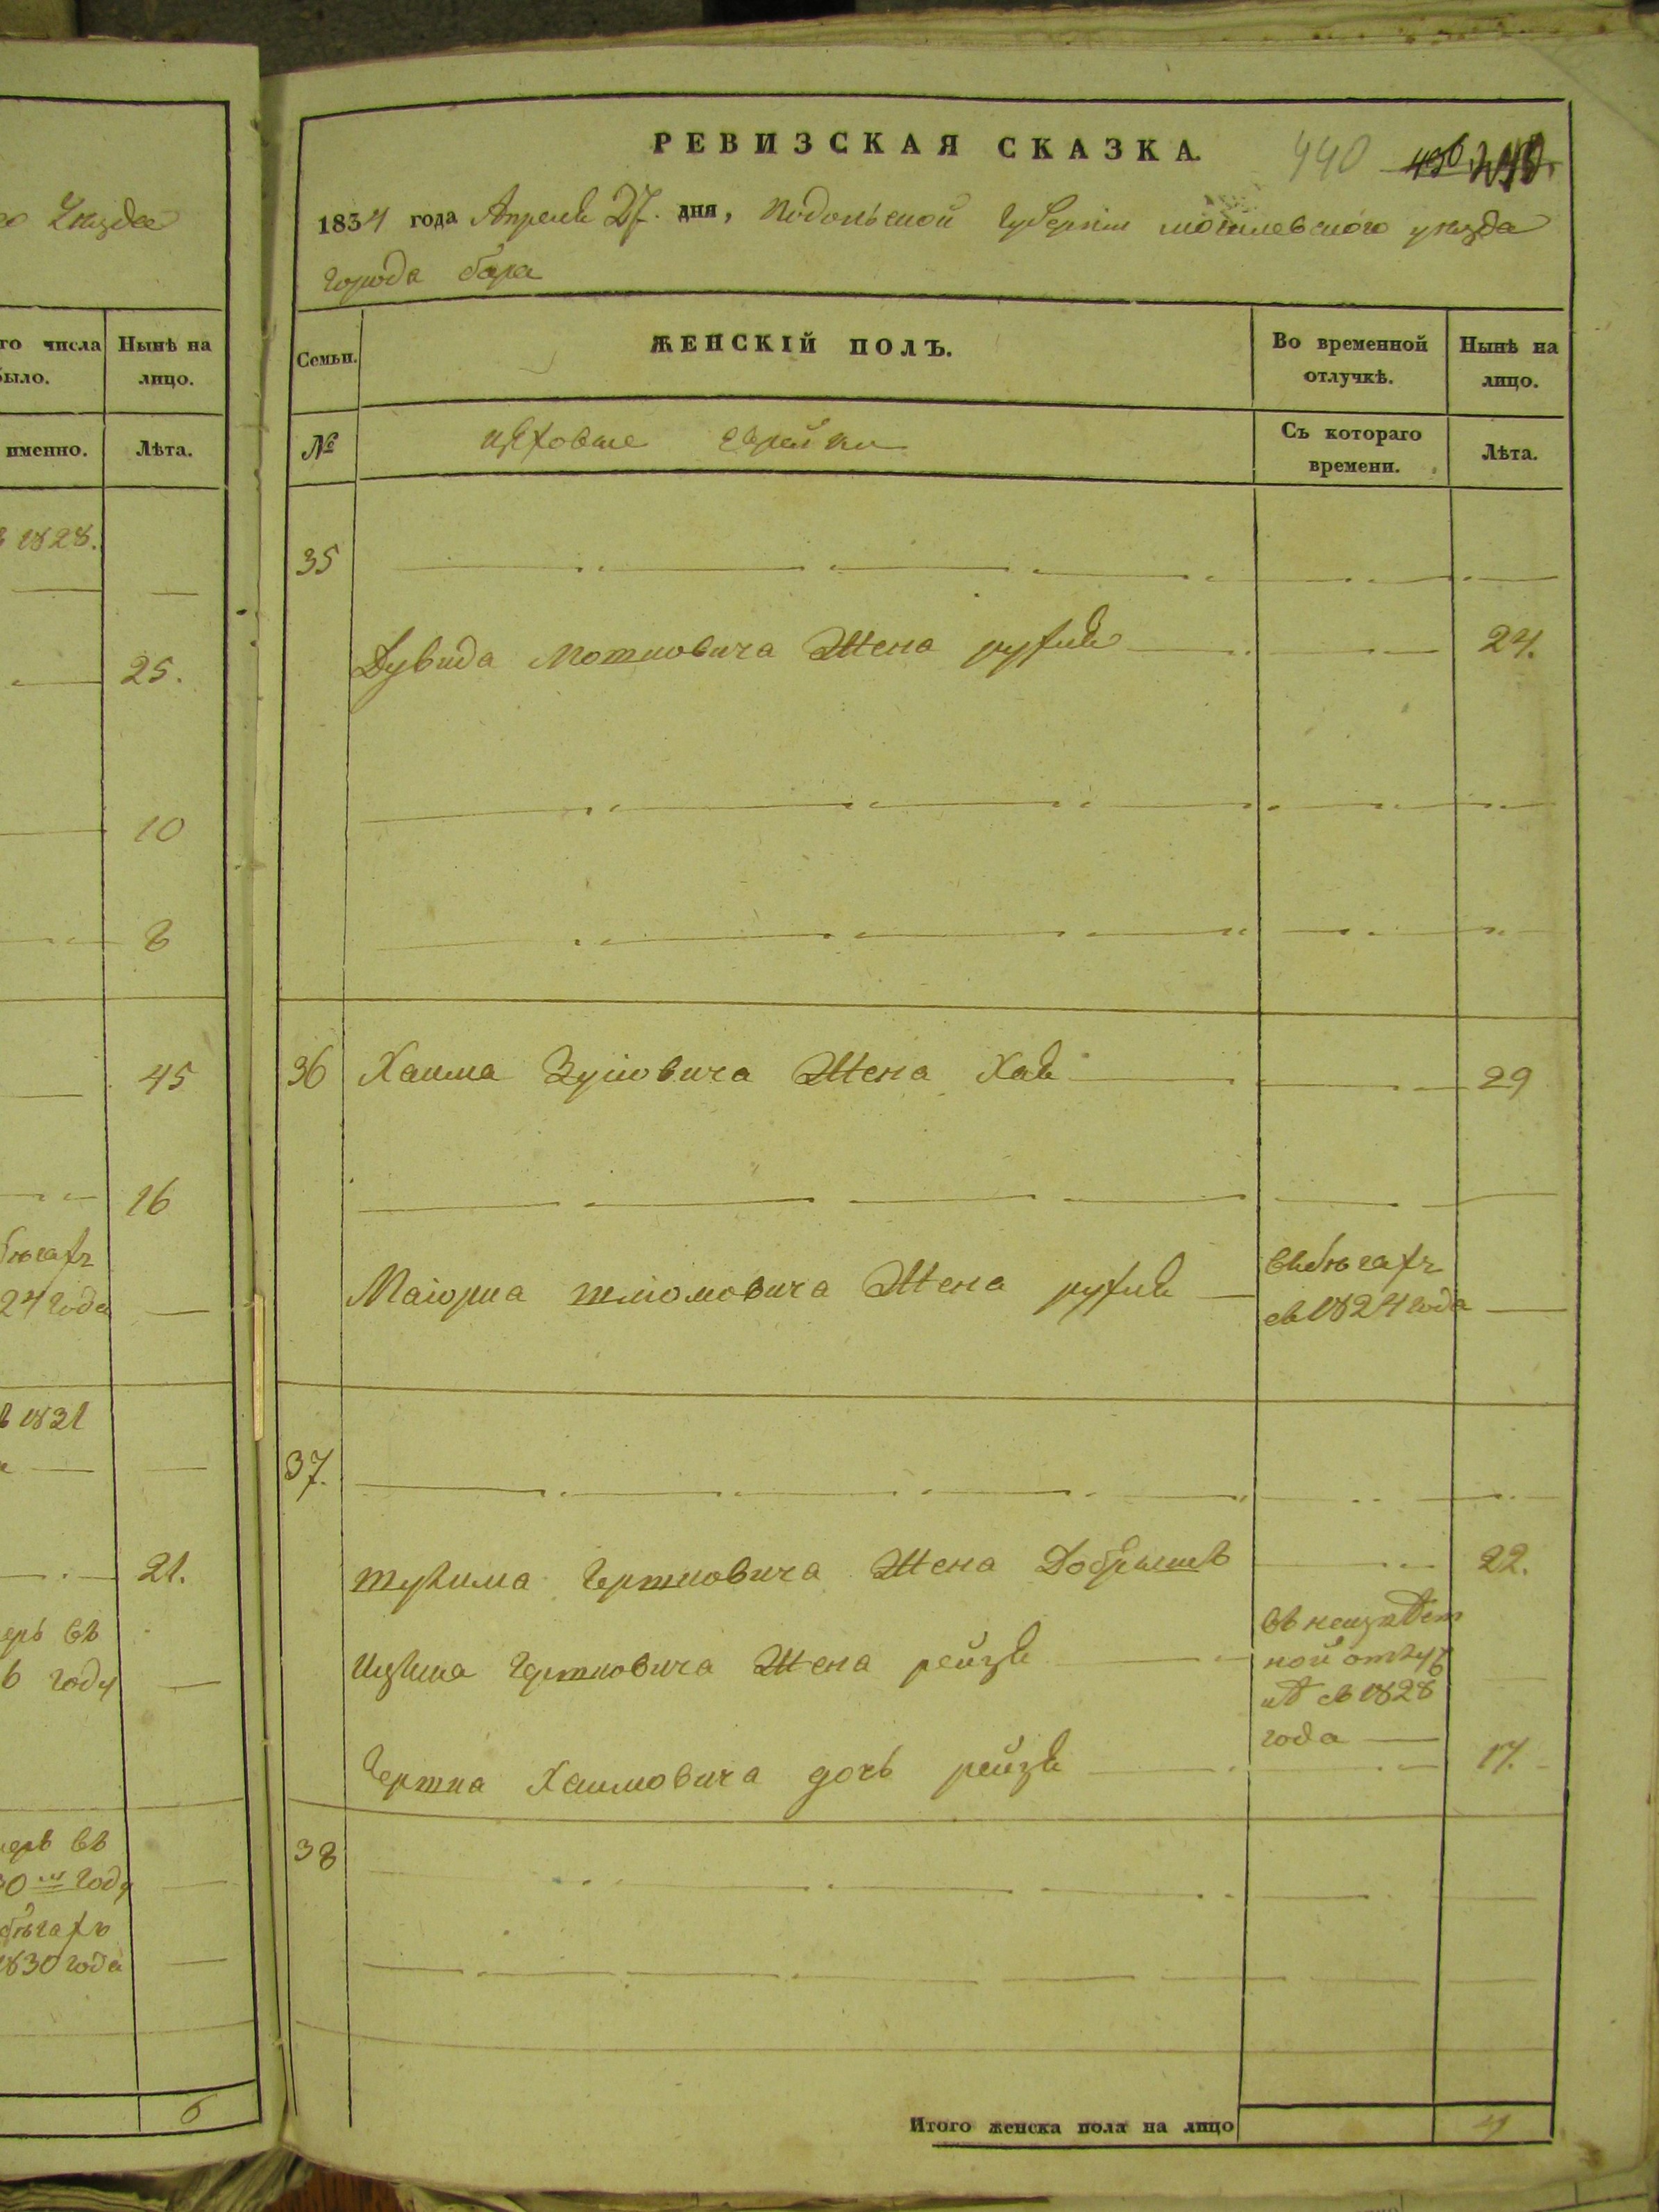 Уезда
го числа
было.
Нынѣ на
лицо.
именно.
Лѣта.
1828.
25.
10
8
45
16
бѣгахъ
24 года
1831
21.
въ
6 году
въ
30 м году
бѣгахъ
1830 года
6
РЕВИЗСКАЯ СКАЗКА.
440 436
1834 года Апреля 27. дня, Подольской Губернии могилевского уезда
города бара
Семьи.
ЖЕНСКІЙ ПОЛЪ.
Во временной
отлучкѣ.
Нынѣ на
лицо.
№
цеховые еврейки
Съ котораго
времени.
Лѣта.
35
Дувида Мотковича Жена рухля 24.
36 Хаима Зусовича Жена Хая 29
Маіорка шліомовича Жена рухля
въ бѣгахъ
съ 1824 года
37.
Нухима Гершковича Жена Добрыш 22.
Ицика Гершковича Жена рейзя
въ неизвѣст
ной отлуч
кѣ съ 1828
года
Гершка Хаимовича дочь рейзя 17.
38
Итого женска пола на лицо 4